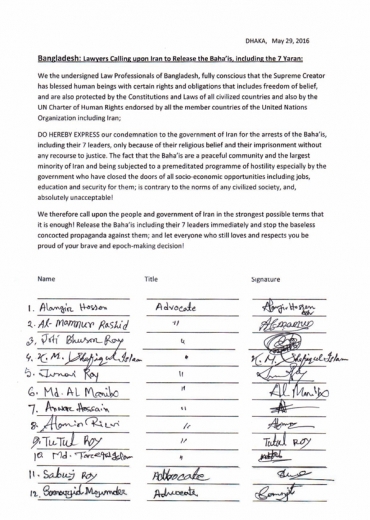 DHAKA, May 29, 2016
Bangladesh: Lawyers Calling upon Iran to Release the Baha'is, including the 7 Yaran:
We the undersigned Law Professionals of Bangladesh, fully conscious that the Supreme Creator
has blessed human beings with certain rights and obligations that includes freedom of belief,
and are also protected by the Constitutions and Laws of all civilized countries and also by the
UN Charter of Human Rights endorsed by all the member countries of the United Nations
Organization including Iran;
DO HEREBY EXPRESS our condemnation to the government of Iran for the arrests of the Baha'is,
including their 7 leaders, only because of their religious belief and their imprisonment without
any recourse to justice. The fact that the Baha'is are a peaceful community and the largest
minority of Iran and being subjected to a premeditated programme of hostility especially by the
government who have closed the doors of all socio-economic opportunities including jobs,
education and security for them; is contrary to the norms of any civilized society, and,
absolutely unacceptable!
We therefore call upon the people and government of Iran in the strongest possible terms that
it is enough! Release the Baha'is including their 7 leaders immediately and stop the baseless
concocted propaganda against them; and let everyone who still loves and respects you be
proud of your brave and epoch-making decision!
Name Title Signature
1. Alamgir Hossen Advocate
2. Al- Mamnur Rashid "
3. Bhuson Roy "
4. K. M. Shafiqul Islam " K. M. Shafiqul Islam
5. Roy "
6. Md. AL Manibo " Al Manibo
7. Anwar Hossain "
8. Alamin "
9. TuTul Roy " Tutul Roy
10. Md. Islam "
11. Sabuj Roy Advocate
12. Mojumder Advocate